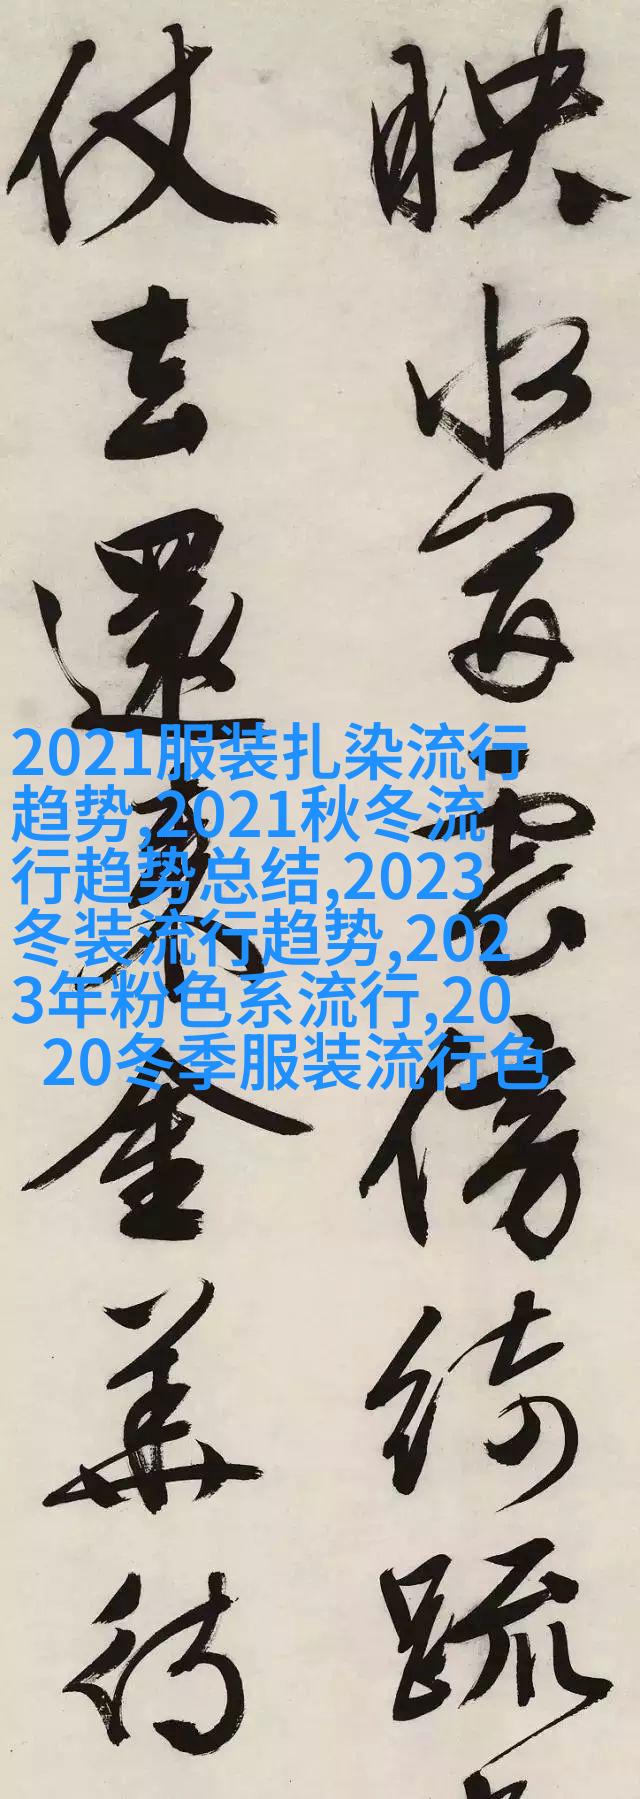 映水寫雲傍綺疏
仗去還來金華待
2021服装扎染流行
趋势,2021秋冬流
行趋势总结,2023
冬装流行趋势,202
3年粉色系流行,20
20冬季服装流行色